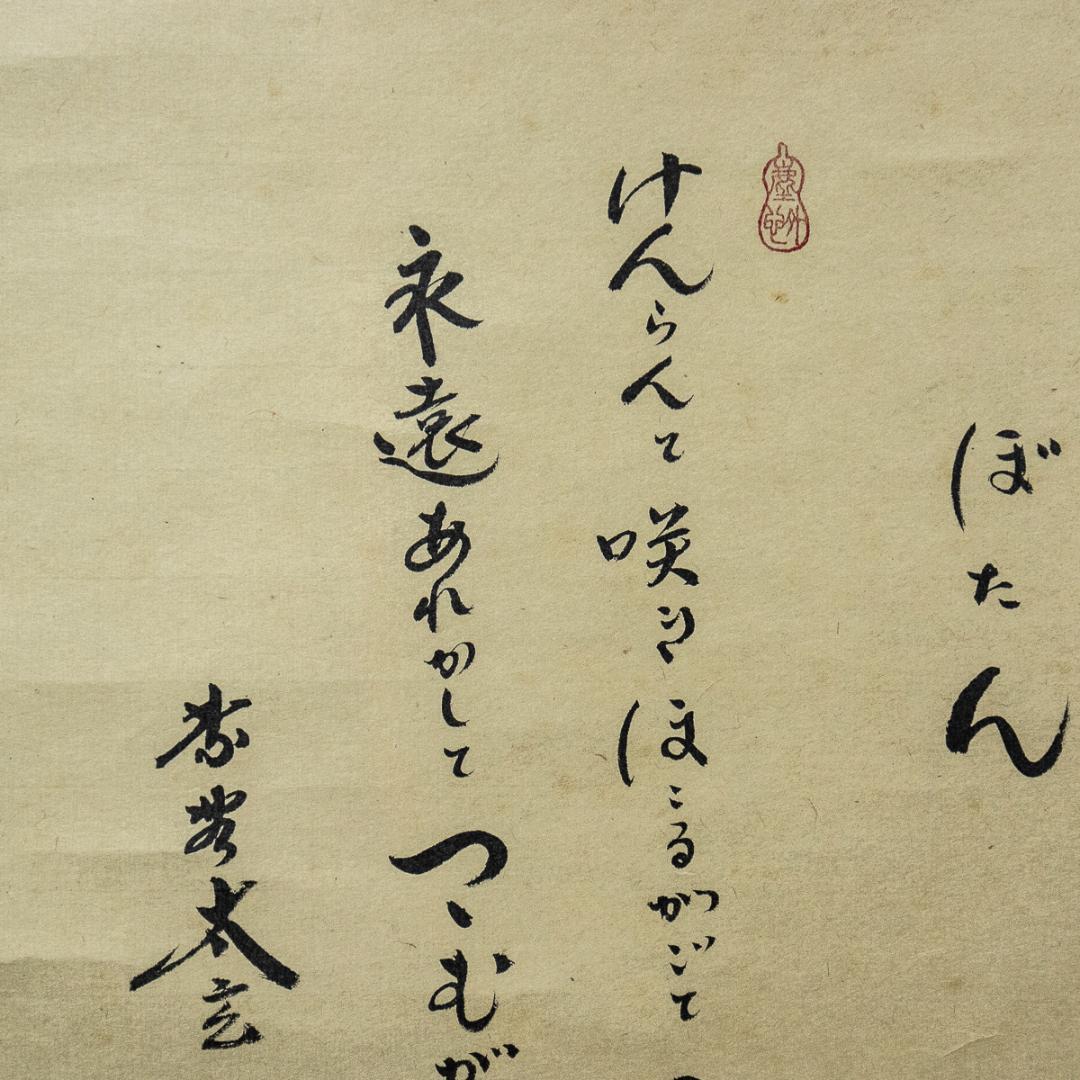 ぼたん
けんらんと咲きほこるがごと
永遠あれかしとつゝむが
太玄